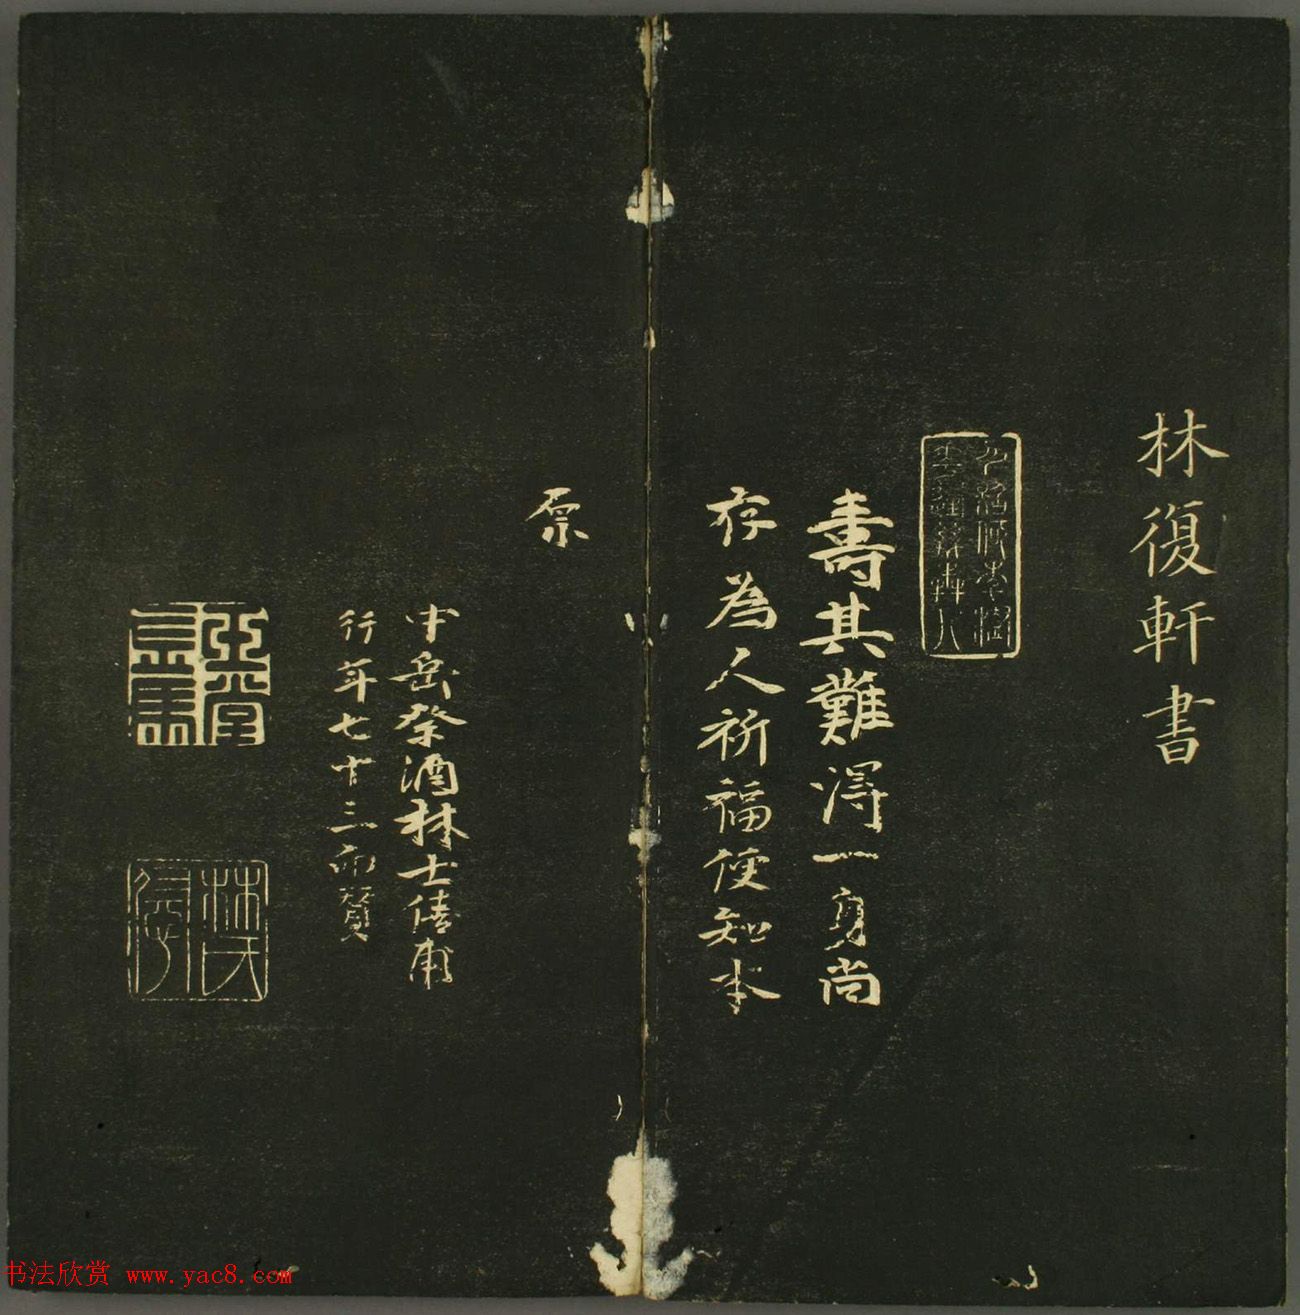 林復軒書
壽其難得一身尚
存為人祈福使知本
原
中岳祭酒林士僖甫
行年七十三而贊
林氏
书法欣赏 www.yac8.com